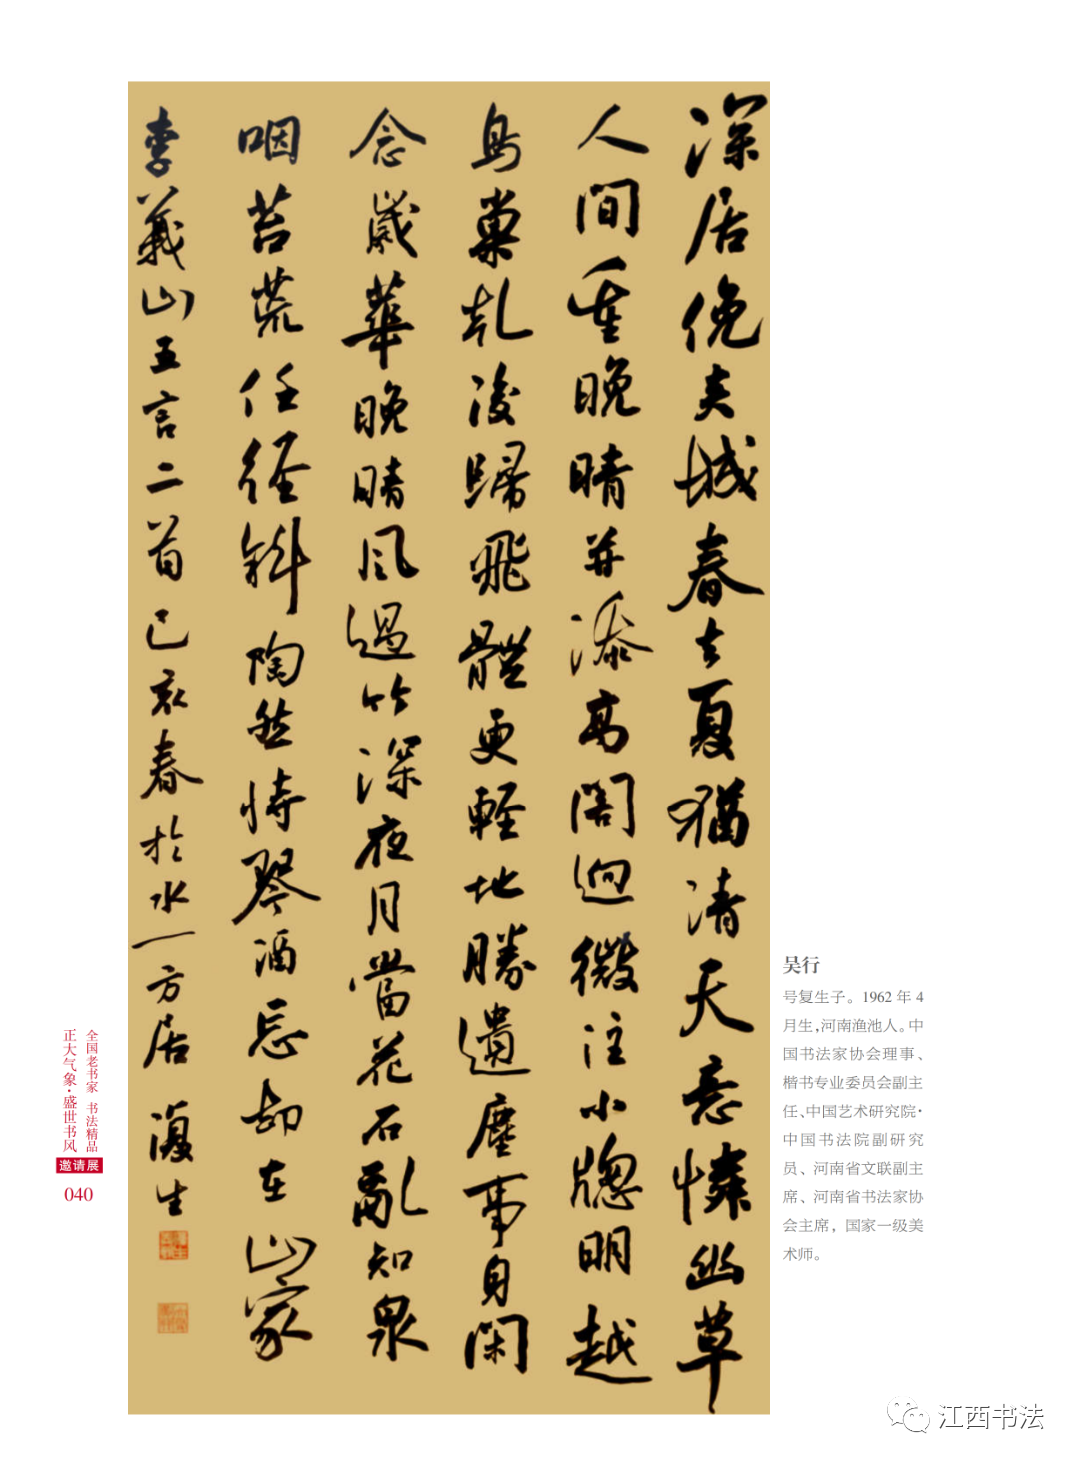 深居俛夹城春去夏猶清天意憐幽草
人間重晚晴并添高閣迥微注小牎明越
鳥巢乾後歸飛體更輕地勝遺塵事身閑
念歲華晚晴风過竹深夜月當花石亂知泉
咽苔荒任径斜陶然恃琴酒忘却在山家
李義山五言二首己亥春於水一方居復生
吴行
号复生子。1962 年 4
月生,河南渔池人。中
国书法家协会理事、
楷书专业委员会副主
任、中国艺术研究院·
中国书法院副研究
员、河南省文联副主
席、河南省书法家协
会主席，国家一级美
术师。
全国老书家 书法精品
正大气象·盛世书风
邀请展
040
江西书法